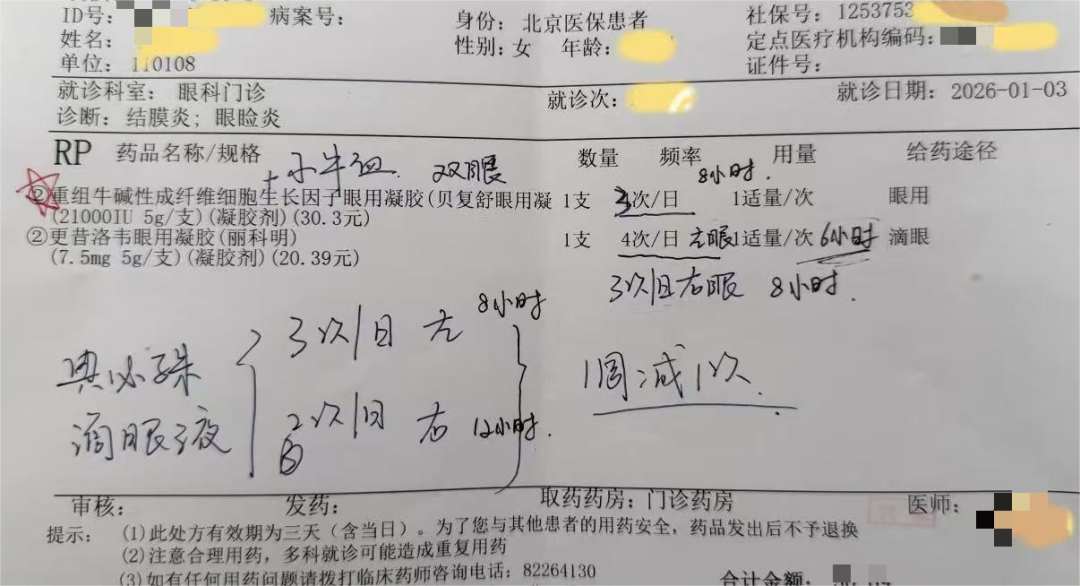 ID号: 病案号:
身份: 北京医保患者
社保号: 1253753
姓名:
性别: 女 年龄:
定点医疗机构编码:
单位: 110108
证件号:
就诊科室: 眼科门诊
就诊次:
就诊日期: 2026-01-03
诊断: 结膜炎; 眼睑炎
RP 药品名称/规格 数量 频率 用量 给药途径
+小牛血 双眼 8小时.
②重组牛碱性成纤维细胞生长因子眼用凝胶(贝复舒眼用凝 1支 3次/日 1适量/次 眼用
(21000IU 5g/支)(凝胶剂)(30.3元)
②更昔洛韦眼用凝胶(丽科明) 1支 4次/日 左眼 1适量/次 6小时 滴眼
(7.5mg 5g/支)(凝胶剂)(20.39元)
3次/日右眼 8小时.
典必殊
滴眼液
3次/日 左 8小时
2次/日 右 12小时.
1周减1次.
审核: 发药: 取药药房: 门诊药房 医师:
提示: (1)此处方有效期为三天(含当日)。为了您与其他患者的用药安全，药品发出后不予退换
(2)注意合理用药，多科就诊可能造成重复用药
(3)如有任何用药问题请拨打临床药师咨询电话: 82264130
合计金额: